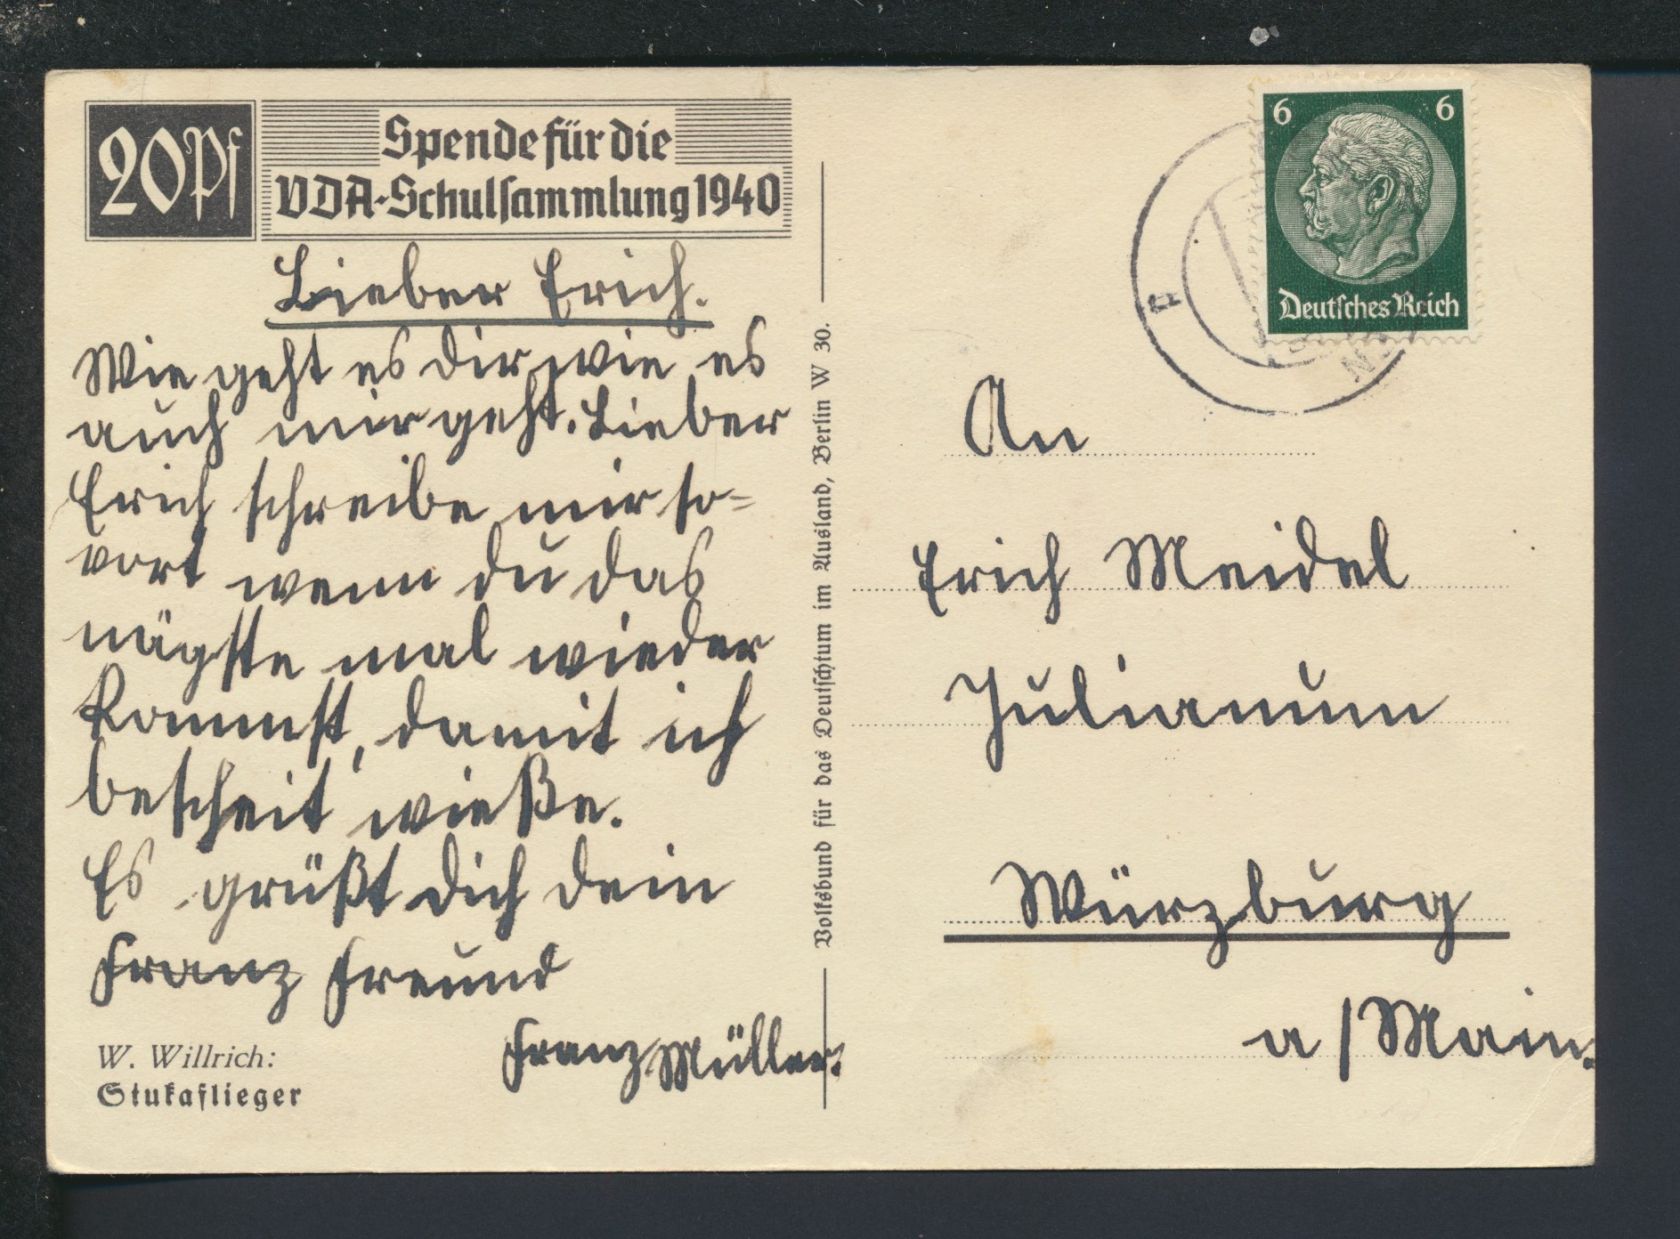 20 Pf
Spende für die
VDA-Schulsammlung 1940
Lieber Erich.
Wie geht es dir, wie es
auch mir geht. Lieber
Erich schreibe mir so=
vort wenn du das
nägste mal wieder
kommst, damit ich
bescheit wieße.
Es grüßt dich dein
Franz Freund
Franz Müller.
W. Willrich:
Stukaflieger
Volksbund für das Deutschtum im Ausland, Berlin W 30.
6 6
Deutsches Reich
An
Erich Meidel
Julianum
Würzburg
a/Main.